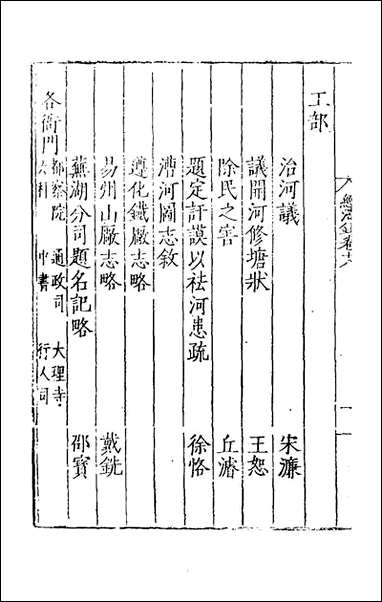 工部
治河議 宋濂
議開河修塘狀 王恕
除民之害 丘濬
題定訏謨以祛河患疏 徐恪
漕河圖志敘
遵化鐵廠志略
易州山廠志略 戴銑
蕪湖分司題名記略 邵寶
各衙門 都察院 通政司 大理寺
六科 中書 行人司